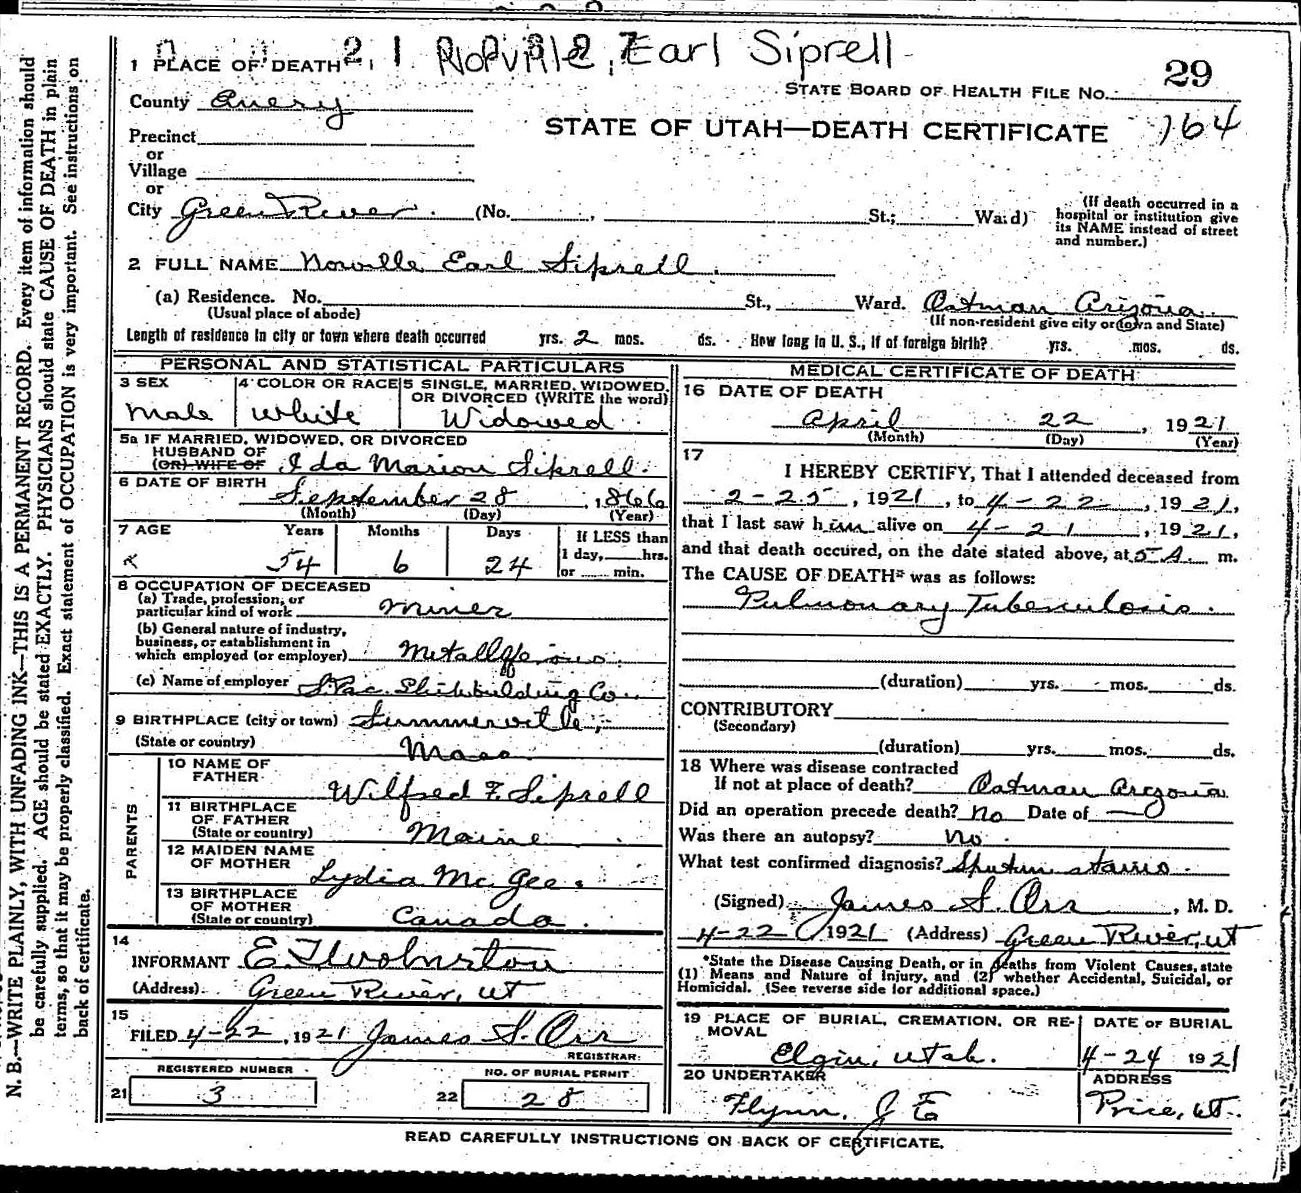 Norville, Earl Siprell
1 PLACE OF DEATH
29
STATE BOARD OF HEALTH FILE No.
County Emery
STATE OF UTAH—DEATH CERTIFICATE 164
Precinct
or
Village
or
City Green River. (No. , St.; Ward)
(If death occurred in a hospital or institution give its NAME instead of street and number.)
2 FULL NAME Norville Earl Siprell.
(a) Residence. No. St., Ward. Oatman Arizona
(Usual place of abode) (If non-resident give city or town and State)
Length of residence in city or town where death occurred yrs. 2 mos. ds. How long in U. S., if of foreign birth? yrs. mos. ds.
PERSONAL AND STATISTICAL PARTICULARS
3 SEX
Male
4 COLOR OR RACE
White
5 SINGLE, MARRIED, WIDOWED,
OR DIVORCED (WRITE the word)
Widowed
5a IF MARRIED, WIDOWED, OR DIVORCED
HUSBAND OF
(OR) WIFE OF Ida Marion Siprell.
6 DATE OF BIRTH
September 28, 1866
(Month) (Day) (Year)
7 AGE Years Months Days If LESS than
1 day, hrs.
54 6 24 or min.
8 OCCUPATION OF DECEASED
(a) Trade, profession, or
particular kind of work Miner
(b) General nature of industry,
business, or establishment in
which employed (or employer)
(c) Name of employer S. Pac. Shipbuilding Co.
9 BIRTHPLACE (city or town) Summerville,
(State or country) Mass
PARENTS
10 NAME OF
FATHER Wilfred F. Siprell
11 BIRTHPLACE
OF FATHER
(State or country) Maine
12 MAIDEN NAME
OF MOTHER Lydia McGee.
13 BIRTHPLACE
OF MOTHER
(State or country) Canada.
14
INFORMANT
(Address) Green River, Ut
15
FILED 4-22, 1921 James S. Orr
REGISTRAR
REGISTERED NUMBER
21 3
NO. OF BURIAL PERMIT
22 28
MEDICAL CERTIFICATE OF DEATH
16 DATE OF DEATH
April 22, 1921
(Month) (Day) (Year)
17
I HEREBY CERTIFY, That I attended deceased from
2-25, 1921, to 4-22, 1921,
that I last saw him alive on 4-21, 1921,
and that death occured, on the date stated above, at 5 A. m.
The CAUSE OF DEATH* was as follows:
Pulmonary Tuberculosis.
(duration) yrs. mos. ds.
CONTRIBUTORY
(Secondary)
(duration) yrs. mos. ds.
18 Where was disease contracted
If not at place of death? Oatman Arizona
Did an operation precede death? No Date of
Was there an autopsy? No.
What test confirmed diagnosis? Sputum stains.
(Signed) James S. Orr, M. D.
4-22 1921 (Address) Green River, Ut
*State the Disease Causing Death, or in deaths from Violent Causes, state
(1) Means and Nature of Injury, and (2) whether Accidental, Suicidal, or
Homicidal. (See reverse side for additional space.)
19 PLACE OF BURIAL, CREMATION, OR RE-
MOVAL
Elgin, Utah.
DATE OF BURIAL
4-24 1921
20 UNDERTAKER
Flynn, J E
ADDRESS
Price, Ut.
READ CAREFULLY INSTRUCTIONS ON BACK OF CERTIFICATE.
N. B.—WRITE PLAINLY, WITH UNFADING INK—THIS IS A PERMANENT RECORD. Every item of information should
be carefully supplied. AGE should be stated EXACTLY. PHYSICIANS should state CAUSE OF DEATH in plain
terms, so that it may be properly classified. Exact statement of OCCUPATION is very important. See instructions on
back of certificate.